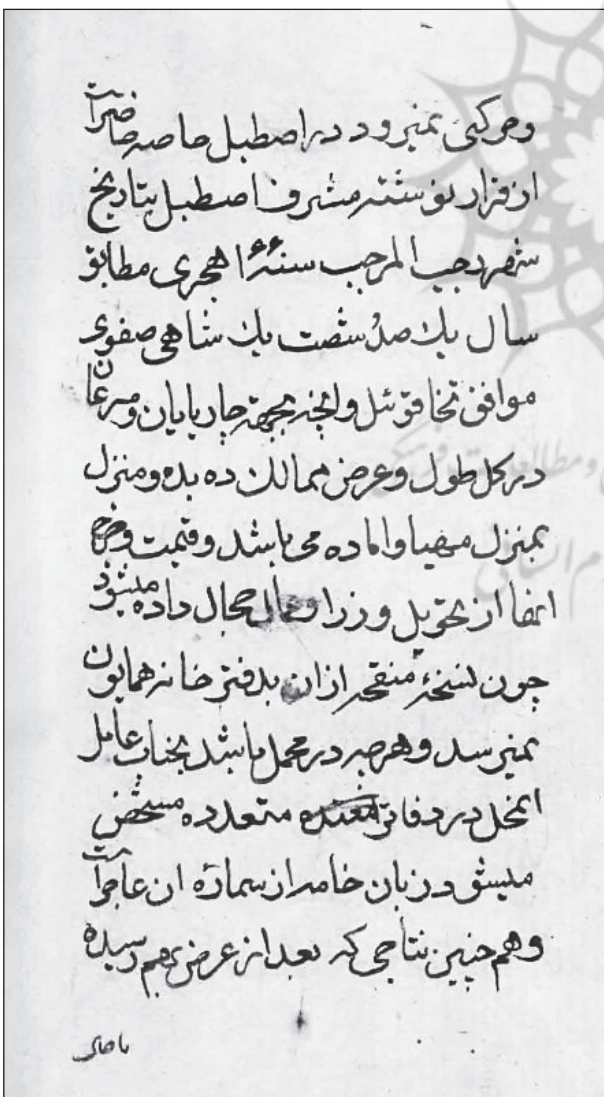 وحرکتی نمیرود در اصطبل خاصه حاضر است
از قرار نوشته مشرف اصطبل بتاریخ
شهر رجب المرجب سنه هجری مطابق
سال یک صد شصت یک شاهی صفوی
موافق تخاقوئیل والچه بجهة چارپایان و مرغان
در کل طول و عرض ممالک ده بده و منزل
بمنزل مهیا و اماده می باشد و قیمت و خرج
انها از تحویل وزرا و عمال محال داده میشود
چون نسخهٔ منقحه ازان بدفتر خانه همایون
نمیرسد و هرچه در محل باشد بجناب عامل
انمحل در دفاتر متعدده مشخص
میشود زبان خامه از شماره ان عاجز است
وهم چنین نتاجی که بعد از عرض بهم رسیده